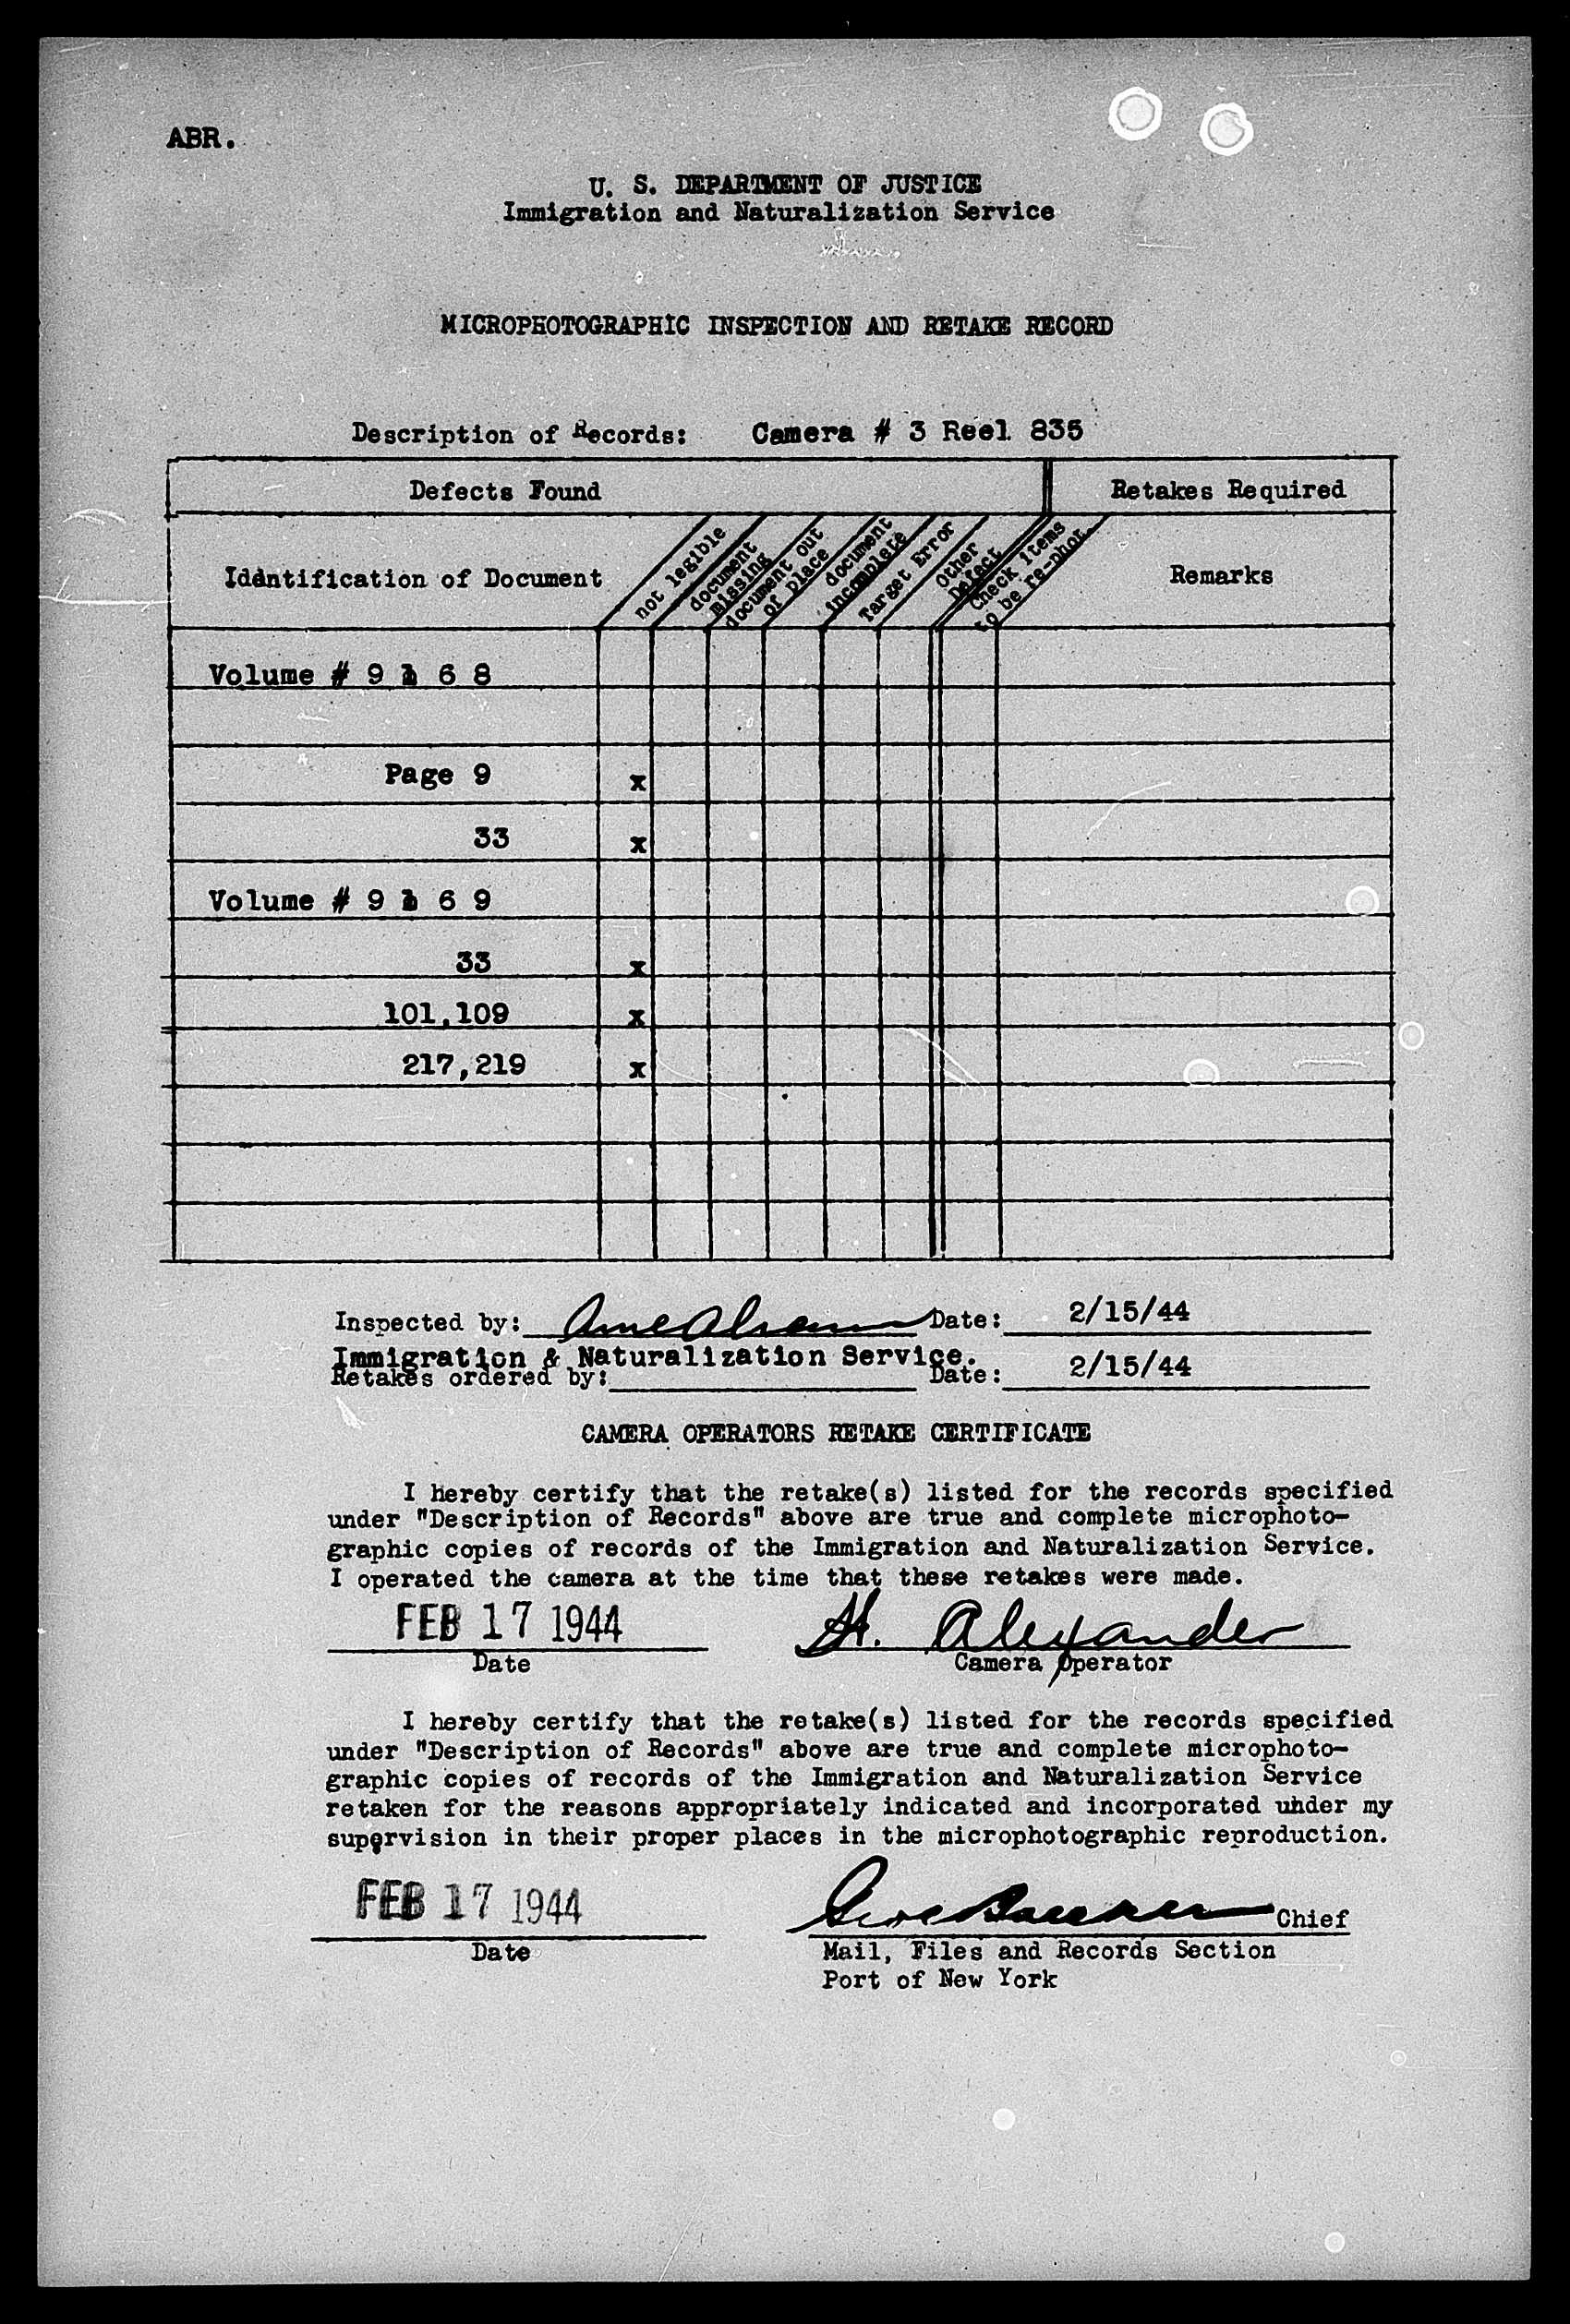 ABR.
U. S. DEPARTMENT OF JUSTICE
Immigration and Naturalization Service
MICROPHOTOGRAPHIC INSPECTION AND RETAKE RECORD
Description of Records: Camera # 3 Reel 835
Defects Found
Retakes Required
Identification of Document
not legible
document missing
document out of place
document incomplete
Target Error
Other Defect
Check items to be re-phot.
Remarks
Volume # 9 6 8
Page 9 x
33 x
Volume # 9 6 9
33 x
101,109 x
217,219 x
Inspected by: Date: 2/15/44
Immigration & Naturalization Service.
Retakes ordered by: Date: 2/15/44
CAMERA OPERATORS RETAKE CERTIFICATE
I hereby certify that the retake(s) listed for the records specified
under "Description of Records" above are true and complete microphoto-
graphic copies of records of the Immigration and Naturalization Service.
I operated the camera at the time that these retakes were made.
FEB 17 1944 H. Alexander
Date Camera Operator
I hereby certify that the retake(s) listed for the records specified
under "Description of Records" above are true and complete microphoto-
graphic copies of records of the Immigration and Naturalization Service
retaken for the reasons appropriately indicated and incorporated under my
supervision in their proper places in the microphotographic reproduction.
FEB 17 1944 Chief
Date Mail, Files and Records Section
Port of New York